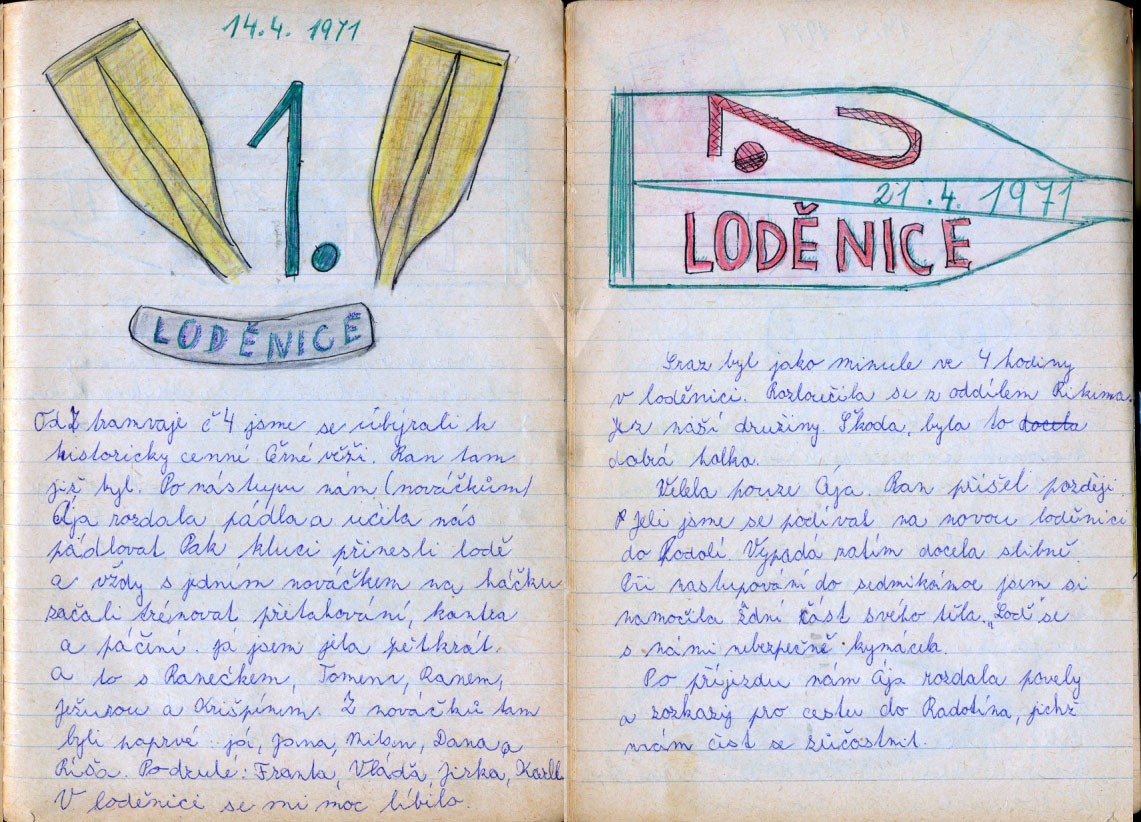 14.4. 1971
1.
LODĚNICE
Od tramvaje č 4 jsme se úbýrali k
historicky cenné Černé věži. Ran tam
již byl. Po nástupu nám (nováčkům)
Ája rozdala pádla a učila nás
pádlovat. Pak kluci přinesli lodě
a vždy s jedním nováčkem na háčku
začali trénovat přetahování, kontra
a páčení. Já jsem jela pětkrát
a to s Ranečkem, Tomem, Ranem,
Ježurou a Krišpínem. Z nováčků tam
byli poprvé: já, Jana, Milan, Dana a
Ríša. Podruhé: Franta, Vláďa, Jirka, Karel.
V loděnici se mi moc líbilo.
2.
21.4. 1971
LODĚNICE
Sraz byl jako minule ve 4 hodiny
v loděnici. Rozloučila se z oddílem Rikima.
Je z náší družiny. Škoda, byla to docela
dobrá holka.
Velela pouze Ája. Ran přišel později.
Jeli jsme se podívat na novou loděnici
do Podolí. Vypadá zatím docela slibně.
Při nastupování do sedmikánoe jsem si
namočila žádní část svého těla. „Loď" se
s námi nebezpečně kymácela.
Po příjezdu nám Ája rozdala povely
a rozkazy pro cestu do Radotína, jichž
mám číst se zůčastnit.